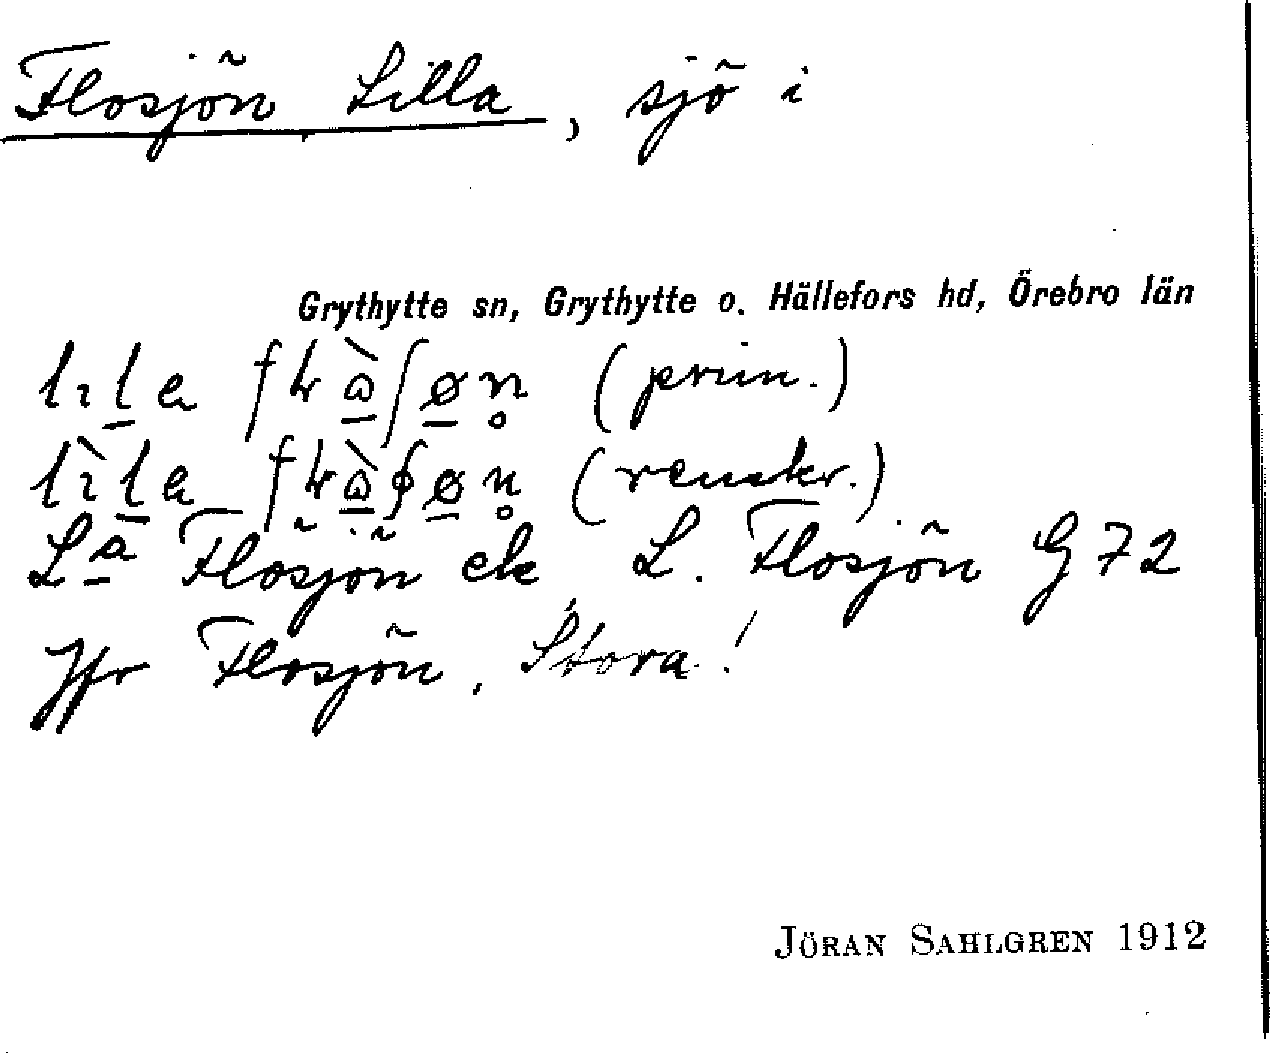 Flosjön, Lilla, sjö i
Grythytte sn, Grythytte o. Hällefors hd, Örebro län
(prim.)
(renskr.)
La Flosjön ek L. Flosjön G 72
Jfr Flosjön, Stora!
JÖRAN SAHLGREN 1912